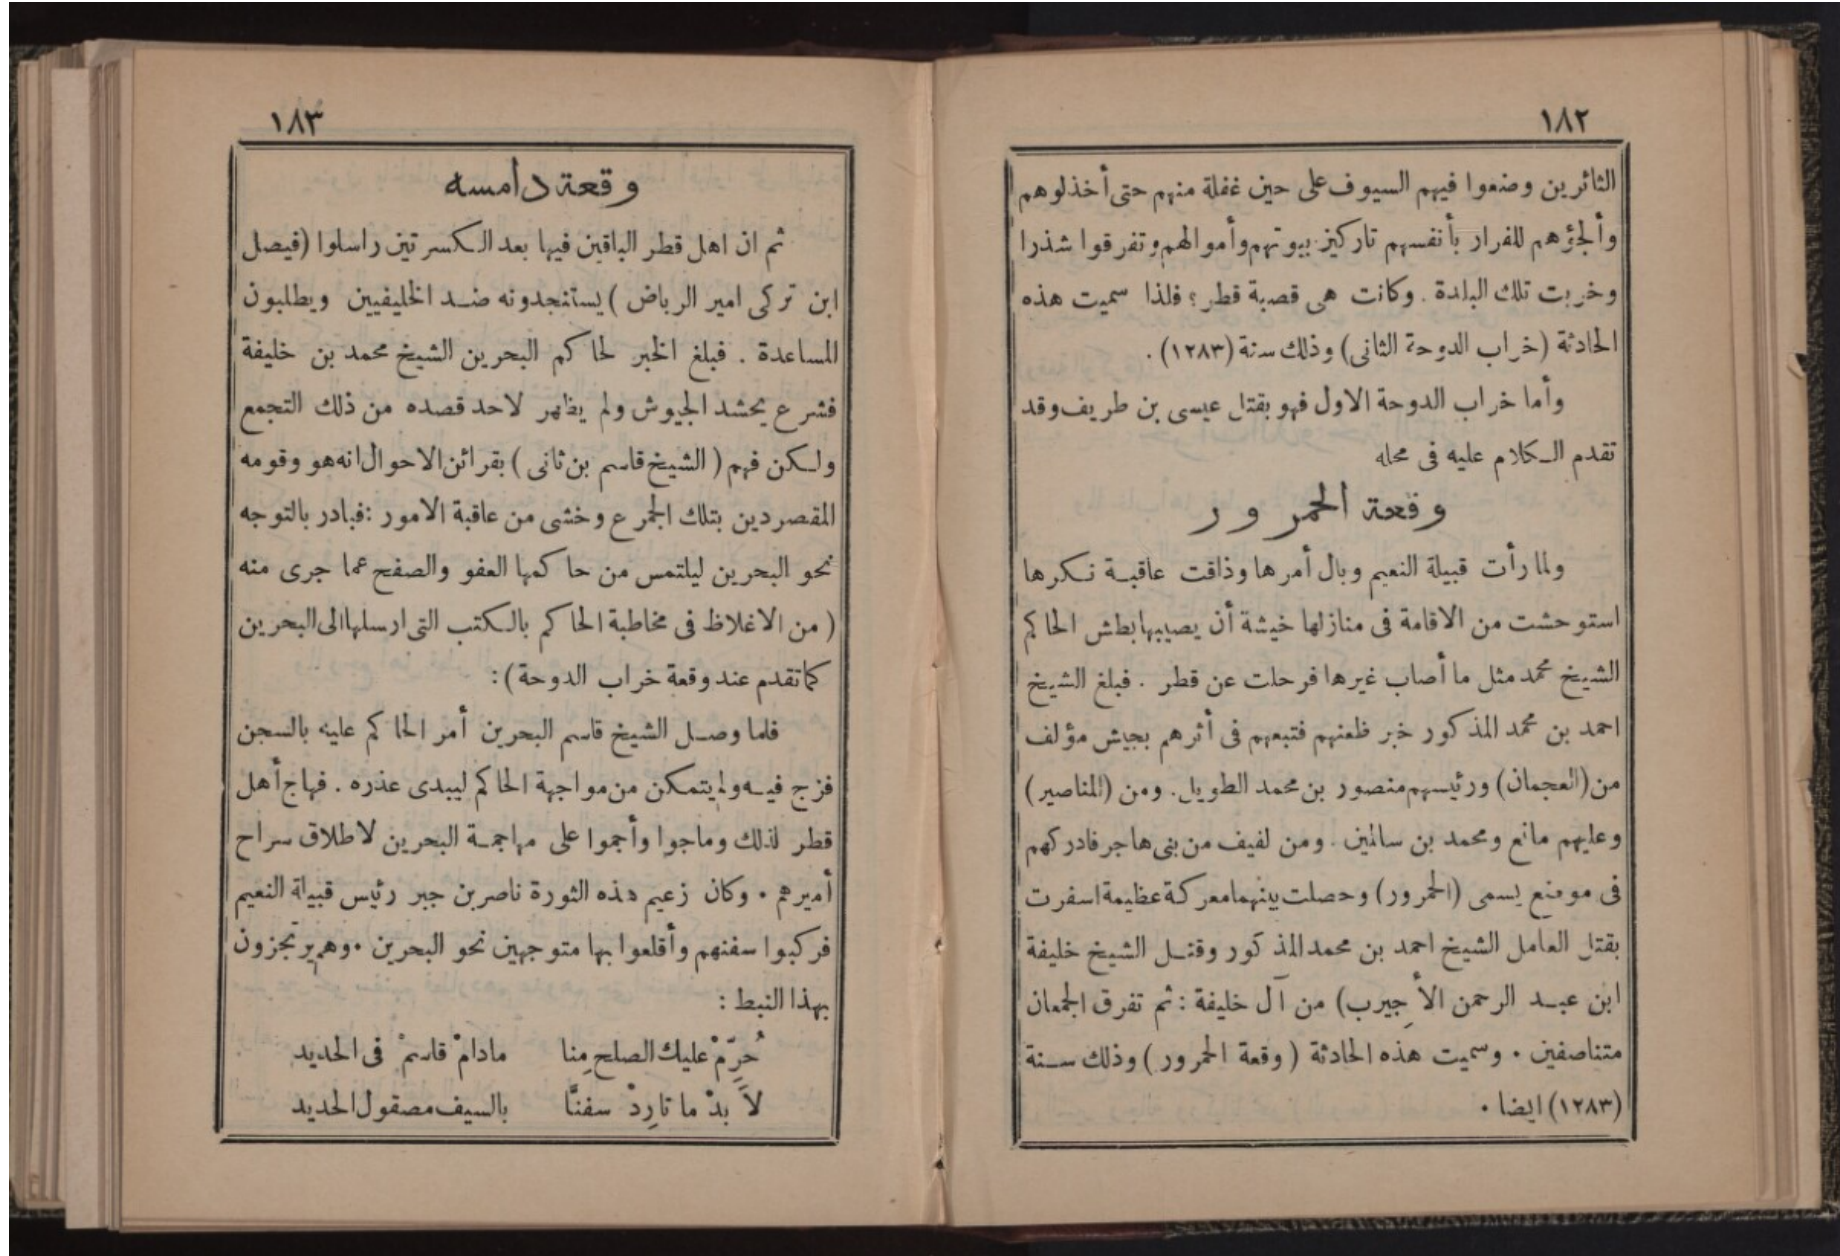 ١٨٢
الثائرين وضعوا فيهم السيوف على حين غفلة منهم حتى أخذلوهم
وألجؤهم للفرار بأنفسهم تاركين بيوتهم وأموالهم وتفرقوا شذرا
وخربت تلك البلدة . وكانت هى قصبة قطر ؛ فلذا سميت هذه
الحادثة (خراب الدوحة الثانى) وذلك سنة (١٢٨٣) .
وأما خراب الدوحة الاول فهو بقتل عيسى بن طريف وقد
تقدم الكلام عليه فى محله
وقعة الحمرور
ولما رأت قبيلة النعيم وبال أمرها وذاقت عاقبة نكرها
استوحشت من الاقامة فى منازلها خيشة أن يصيبها بطش الحاكم
الشيخ محمد مثل ما أصاب غيرها فرحلت عن قطر . فبلغ الشيخ
احمد بن محمد المذكور خبر ظعنهم فتبعهم فى أثرهم بجيش مؤلف
من (العجمان) ورئيسهم منصور بن محمد الطويل. ومن (المناصير)
وعليهم مانع ومحمد بن سالمين . ومن لفيف من بنى هاجر فادركهم
فى موضع يسمى (الحمرور) وحصلت بينهما معركة عظيمة اسفرت
بقتل العامل الشيخ احمد بن محمد المذكور وقتل الشيخ خليفة
ابن عبد الرحمن الأجيرب) من آل خليفة : ثم تفرق الجمعان
متناصفين . وسميت هذه الحادثة ( وقعة الحمرور ) وذلك سنة
(١٢٨٣) ايضا .
١٨٣
وقعة دامسه
ثم ان اهل قطر الباقين فيها بعد الكسرتين راسلوا (فيصل
ابن تركى امير الرياض ) يستنجدونه ضد الخليفيين ويطلبون
المساعدة . فبلغ الخبر لحاكم البحرين الشيخ محمد بن خليفة
فشرع يحشد الجيوش ولم يظهر لاحد قصده من ذلك التجمع
ولكن فهم ( الشيخ قاسم بن ثانى ) بقرائن الاحوال انه هو وقومه
المقصردين بتلك الجمرع وخشى من عاقبة الامور : فبادر بالتوجه
نحو البحرين ليلتمس من حاكمها العفو والصفح عما جرى منه
( من الاغلاظ فى مخاطبة الحاكم بالكتب التى ارسلها الى البحرين
كما تقدم عند وقعة خراب الدوحة ) :
فلما وصل الشيخ قاسم البحرين أمر الحاكم عليه بالسجن
فزج فيه ولم يتمكن من مواجهة الحاكم ليبدى عذره . فهاج أهل
قطر لذلك وماجوا وأجموا على مهاجمة البحرين لاطلاق سراح
أميرهم . وكان زعيم هذه الثورة ناصر بن جبر رئيس قبيلة النعيم
فركبوا سفنهم وأقلعوا بها متوجهين نحو البحرين . وهم يرتجزون
بهذا النبط :
حُرِّمْ عليك الصلح مِنا مادامْ قاسمْ فى الحديد
لاَ بدْ ما تارِدْ سفنَّا بالسيف مصقول الحديد